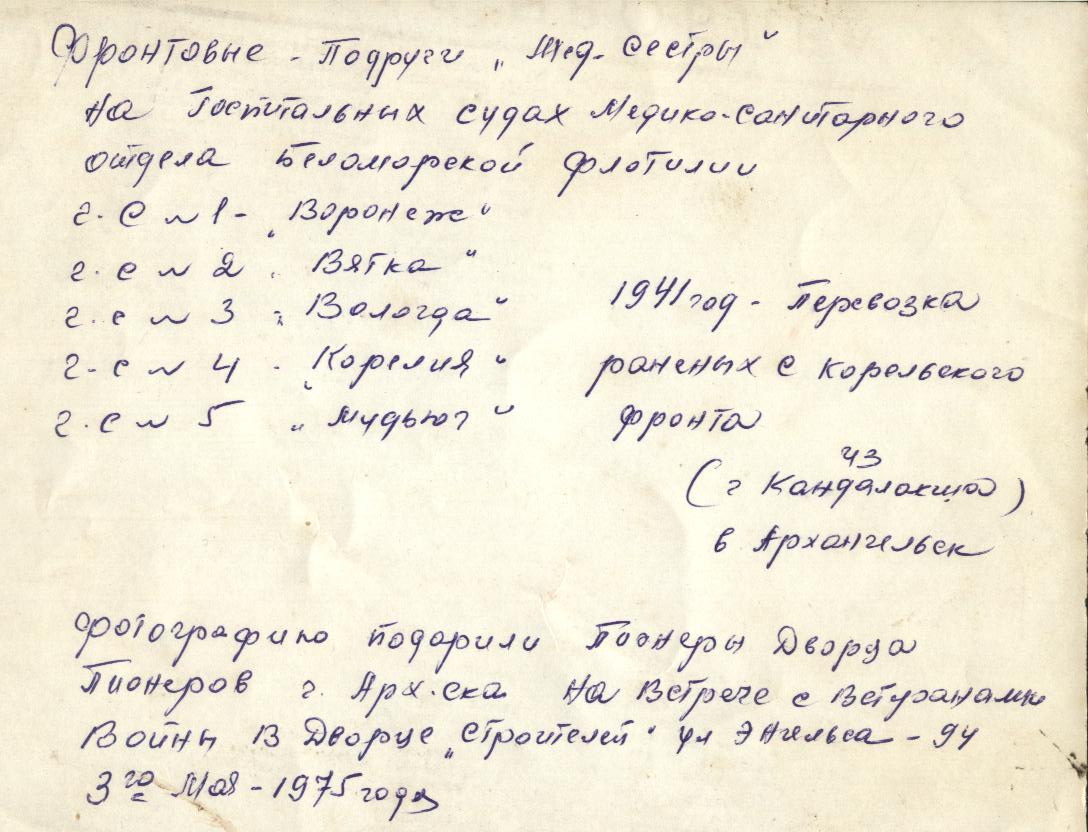 Фронтовые - Подруги „Мед. Сестры"
на Госпитальных судах Медико-санитарного
отдела Беломорской флотилии
г. С N 1 - „Воронеж"
г. с N 2 „Вятка"
г. с N 3 „Вологда"
г. с N 4 - „Корелия"
г. с N 5 „Мудьюг"
1941 год - Перевозка
раненых с корельского
фронта
из
(г Кандалакша)
в Архангельск
Фотографию подарили Пионеры Дворца
Пионеров г. Арх-ска на Встрече с Ветеранами
Войны в Дворце „Строителей" ул Энгельса - 94
3го Мая - 1975 года